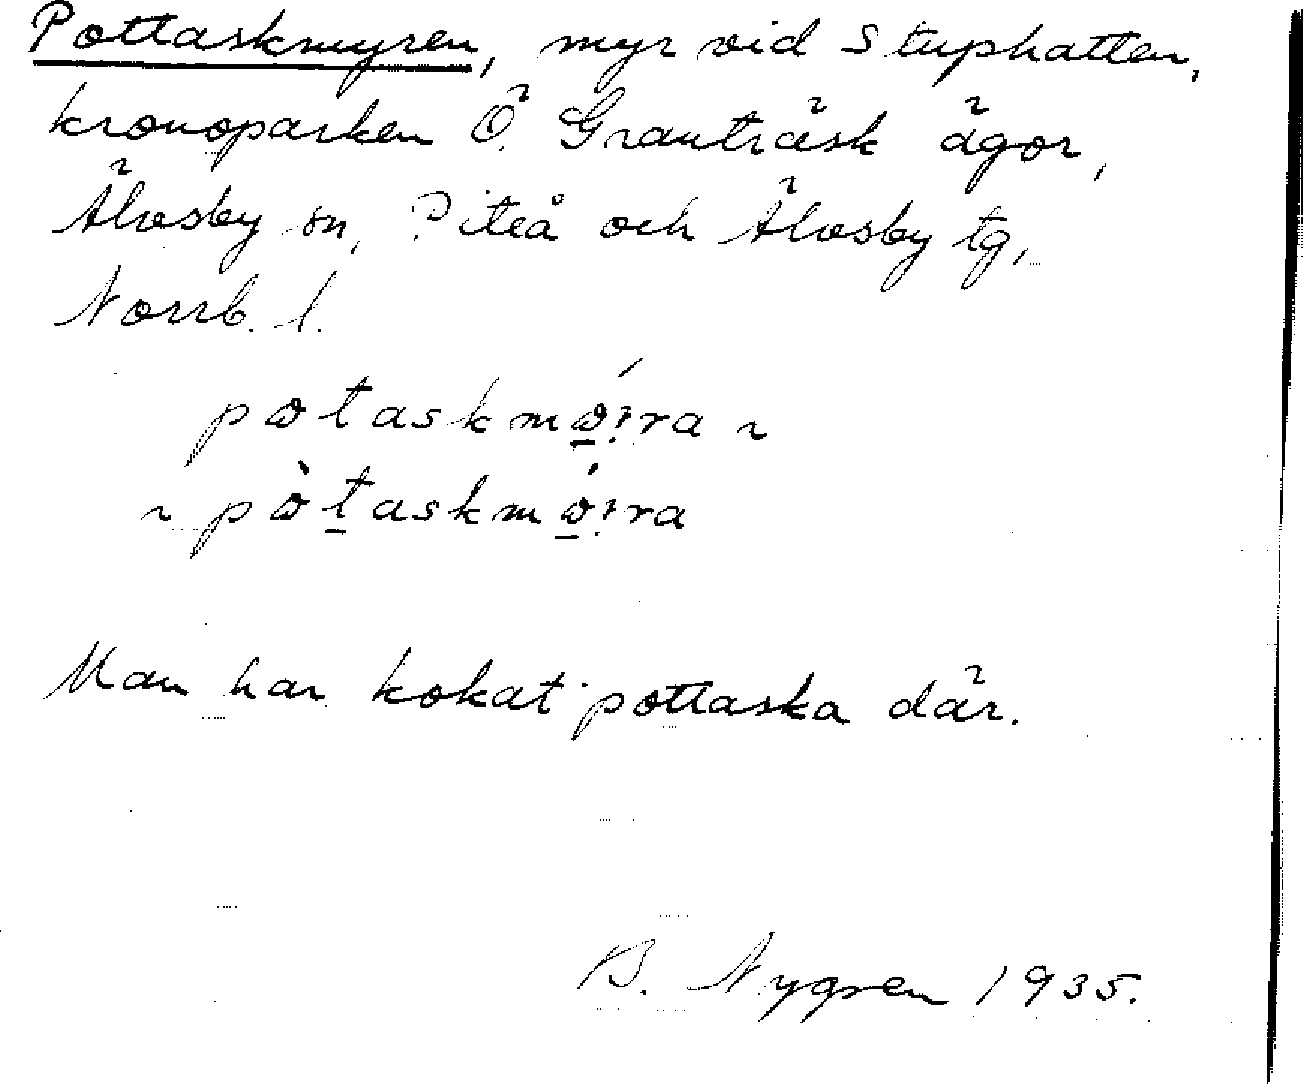 Pottaskmyren, myr vid Stuphatten,
kronoparken Ö. Granträsk ägor,
Älvsby sn, Piteå och Älvsby tg,
Norrb. l.
potaskmö́i̯ra ~
~ pòt̠askmö́i̯ra
Man har kokat pottaska där.
B. Nygren 1935.